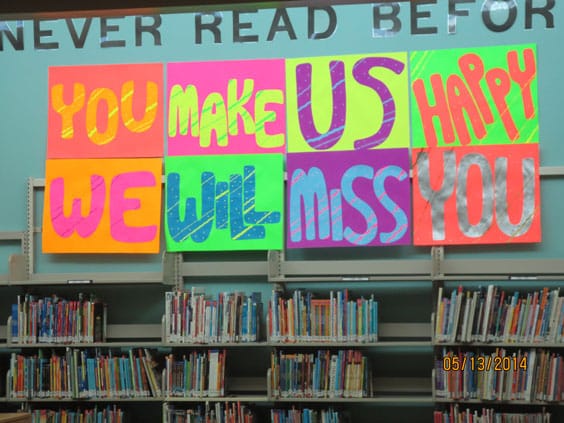 NEVER READ BEFOR
YOU MAKE US HAPPY
WE WILL MISS YOU
05/13/2014